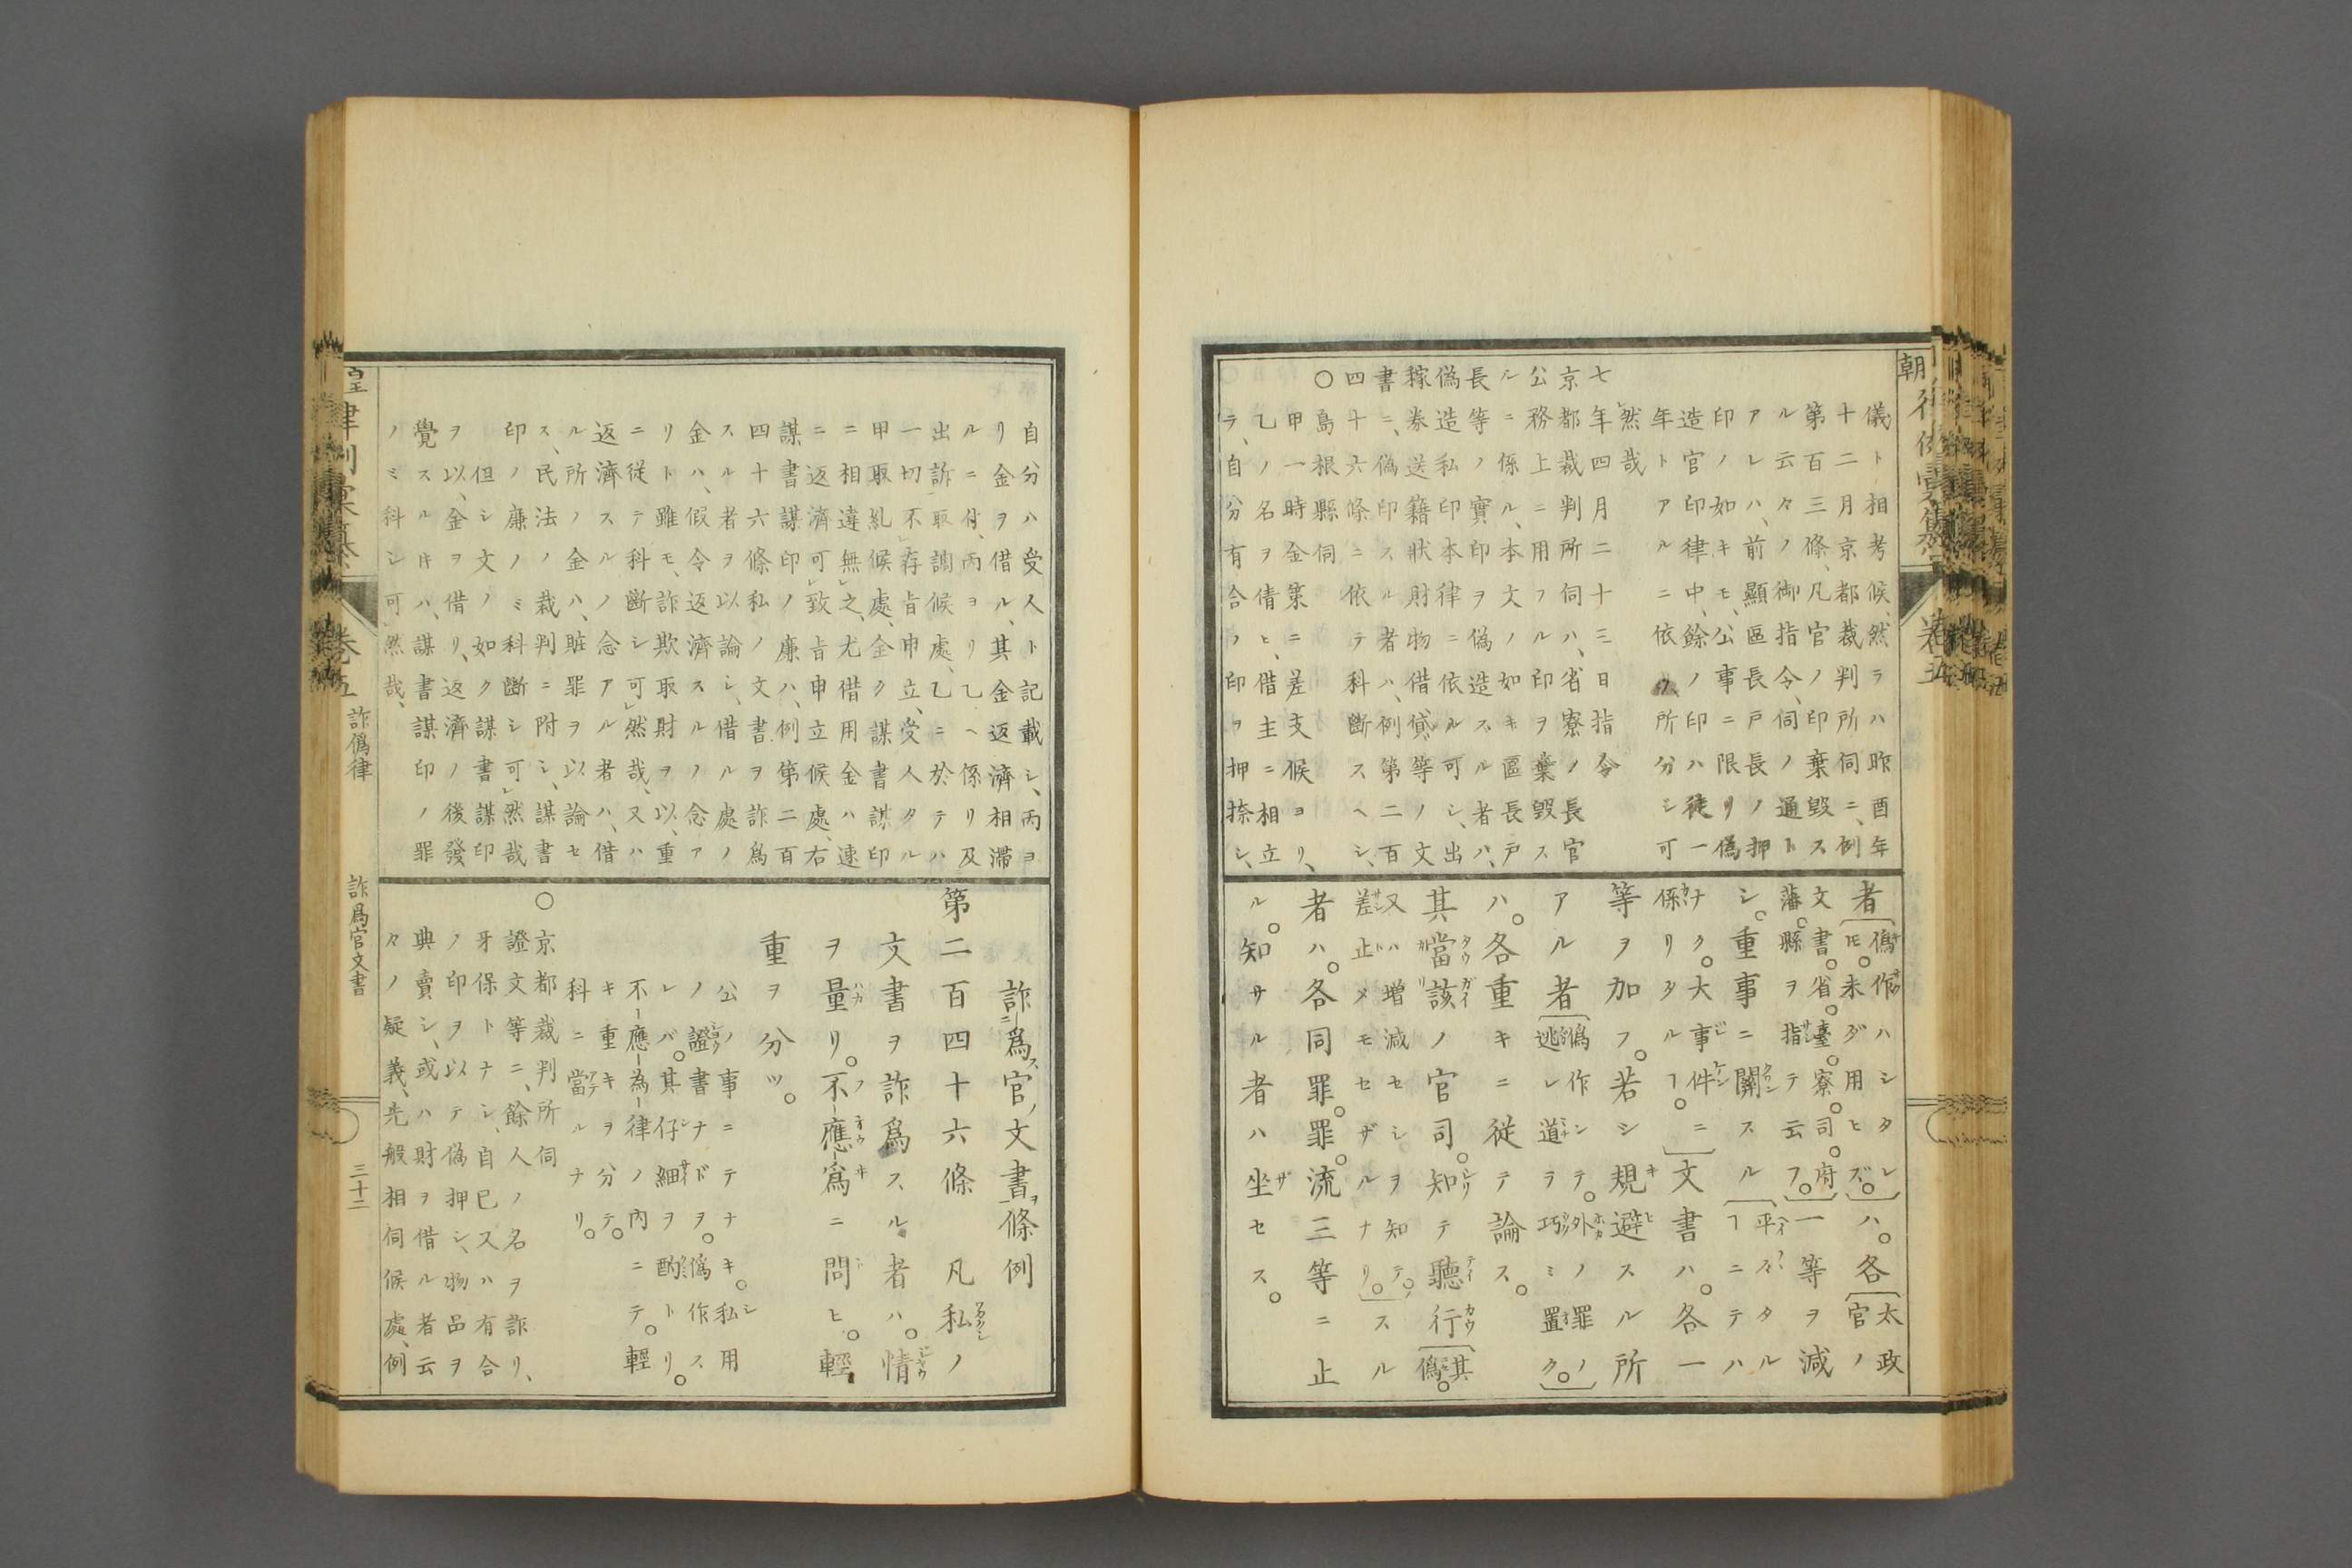 儀ト相考候、然ラハ昨酉年
十二月京都裁判所伺ニ、例
第百三條、凡官ノ印棄毀ス
ル云々ノ御指令、伺ノ通ト
アレハ、前顯區長戸長ノ押
印ノ如キモ、公事ニ限リ偽
造官印律中、餘ノ印ハ徒一
年トアルニ依リ、所分シ可
然哉
七年四月二十三日指令
京都裁判所伺ハ、省寮ノ長官
公務上ニ用フル印ヲ棄毀ス
ルニ係ル、本文ノ如キ區長戸
長等ノ實印ヲ偽造スル者ハ、
偽造私印本律ニ依ル可シ、出
稼券送籍狀財物借貸等ノ文
書ニ、偽印スル者ハ、例第二百
四十六條ニ依テ科斷スヘシ、
○島根縣伺
甲一時金策ニ差支候ヨリ、
乙ノ名ヲ借ヒ、借主ニ相立
ラ、自分有合ノ印ヲ押捺シ、
者偽作ハシタレ𪜈。未ダ用ヒズ。ハ。各太政官ノ
文書。省。臺。寮。司。府藩。縣ヲ指テ云フ。一等ヲ減
シ。重事ニ關スル平ノタルヿニテハ
ナク。大事件ニ係リタルヿ。文書ハ。各一
等ヲ加フ。若シ規避スル所
アル者偽作シテ。外ノ罪ノ逃レ道ヲ巧ミ置ク。
ハ。各重キニ從テ論ス。
其當該ノ官司。知テ聽行其偽。
又ハ増減セシヲ知テ。差止メモセザルナリ。スル
者ハ。各同罪。罪。流三等ニ止
ル。知サル者ハ坐セス。
自分ハ受人ト記載シ、丙ヨ
リ金ヲ借ル、其金返濟相滯
ルニ付、丙ヨリ乙ヘ係リ及
出訴取調候處、乙ニ於テハ
一切不存旨申立、受人タル
甲取糺候處、金ク謀書謀印
ニ相違無之、尤借用金ハ速
ニ返濟可致旨申立候處、右
謀書謀印ノ廉ハ、例第二百
四十六條私ノ文書ヲ詐爲
スル者ヲ以論シ、借ル處ノ
金ハ、假令返濟スルノ念ア
リト雖モ、詐欺取財ヲ以、重
ニ從テ科斷シ可然哉、又ハ
返濟スルノ念アル者ハ、借
ル所ノ金ハ、贓罪ヲ以論セ
ス、民法ノ裁判ニ附シ、謀書
印ノ廉ノミ科斷シ可然哉
但シ文ノ如ク謀書謀印
ヲ以、金ヲ借リ、返濟ノ後發
覺スル𪜈ハ、謀書謀印ノ罪
ノミ科シ可然哉、
詐爲官文書條例
第二百四十六條 凡私ノ
文書ヲ詐爲スル者ハ。情
ヲ量リ。不應爲ニ問ヒ。輕
重ヲ分ツ。
公ノ事ニテナキ。私用
ノ證書ナドヲ。偽作ス
レバ。其仔細ヲ酌トリ。
不應為律ノ内ニテ。輕
キ重キヲ分テ。
科ニ當ルナリ。
○京都裁判所伺
證文等ニ、餘人ノ名ヲ詐リ、
牙保トナシ、自己又ハ有合
ノ印ヲ以テ偽押シ、物品ヲ
典賣シ、或ハ財ヲ借ル者云
々ノ疑義、先般相伺候處、例
詐偽律
詐爲官文書
三十二